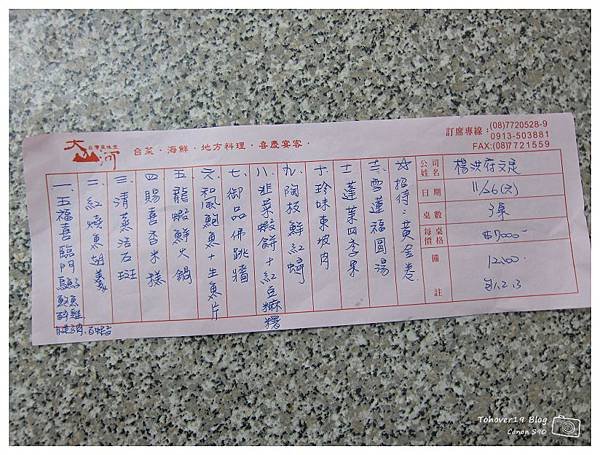 大山河
台灣風味堂
台菜．海鮮．地方料理．喜慶宴客．
訂席專線：(08)7720528-9
0913-503881
FAX:(08)7721559
公司姓名
日期
11/26(六)
桌數
3桌
每桌價格
$7000-
備註
12:00
31.2.13
招待：黃金麦
三、雪蓮福圓湯
土、蓬萊四季果
十、珍味東坡肉
九、陶板鮮紅蟳
八、韭菜蝦餅+紅豆麻糬
七、御品佛跳牆
六、和風鮑魚+生魚片
五、龍蝦鮮火鍋
四、賜喜香米糕
三、清蒸活石斑
二、紅燒魚翅羹
一、五福喜臨門
Tohover19 Blog
Canon S90